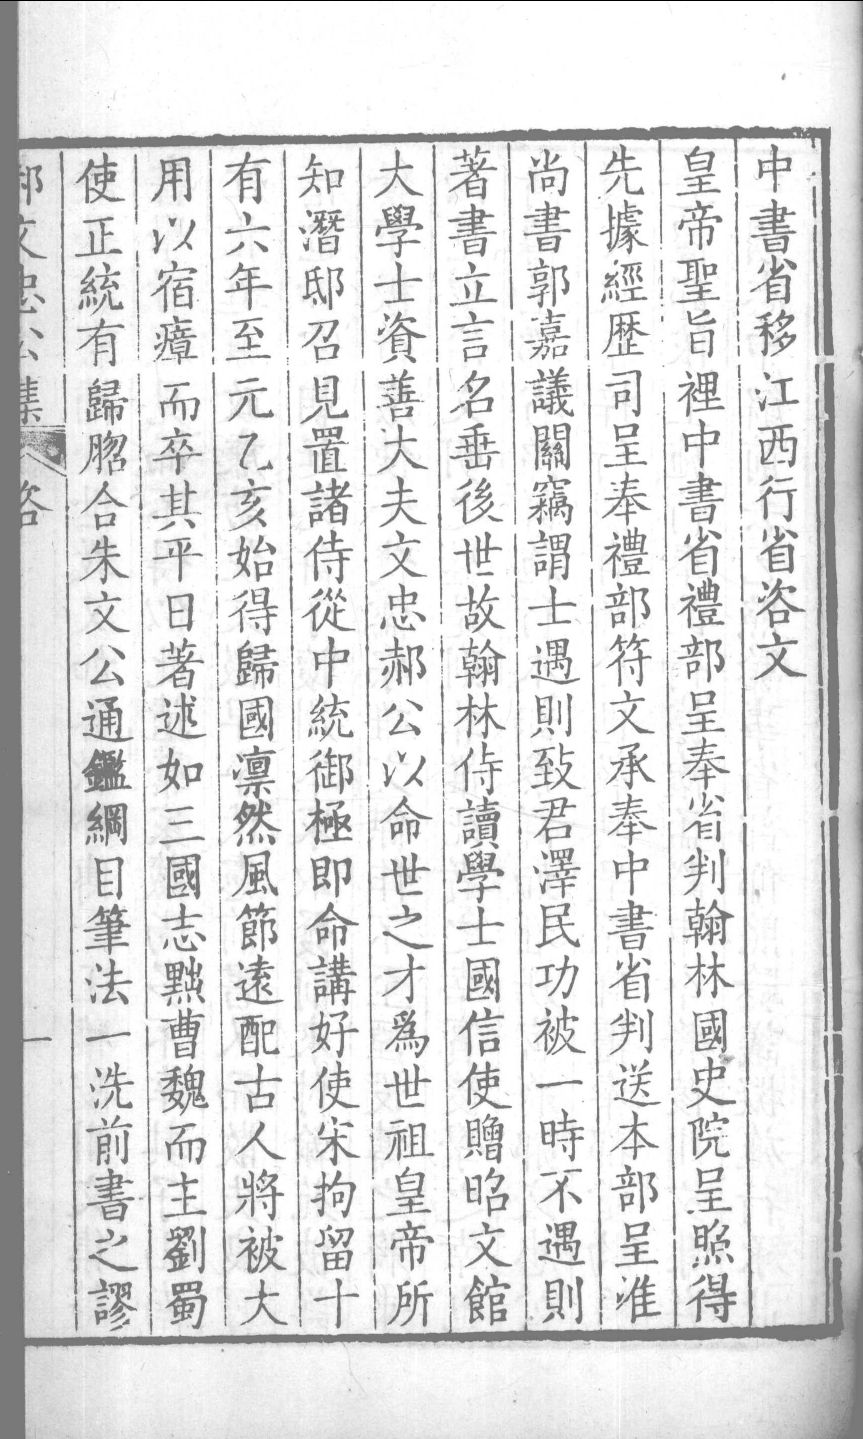 中書省移江西行省咨文
皇帝聖旨裡中書省禮部呈奉省判翰林國史院呈照得
先據經歷司呈奉禮部符文承奉中書省判送本部呈准
尚書郭嘉議關竊謂士遇則致君澤民功被一時不遇則
著書立言名垂後世故翰林侍讀學士國信使贈昭文館
大學士資善大夫文忠郝公以命世之才爲世祖皇帝所
知潛邸召見置諸侍從中統御極即命講好使宋拘留十
有六年至元乙亥始得歸國凛然風節遠配古人將被大
用以宿瘴而卒其平日著述如三國志黜曹魏而主劉蜀
使正統有歸脗合朱文公通鑑綱目筆法一洗前書之謬
郝文忠公集 咨 一